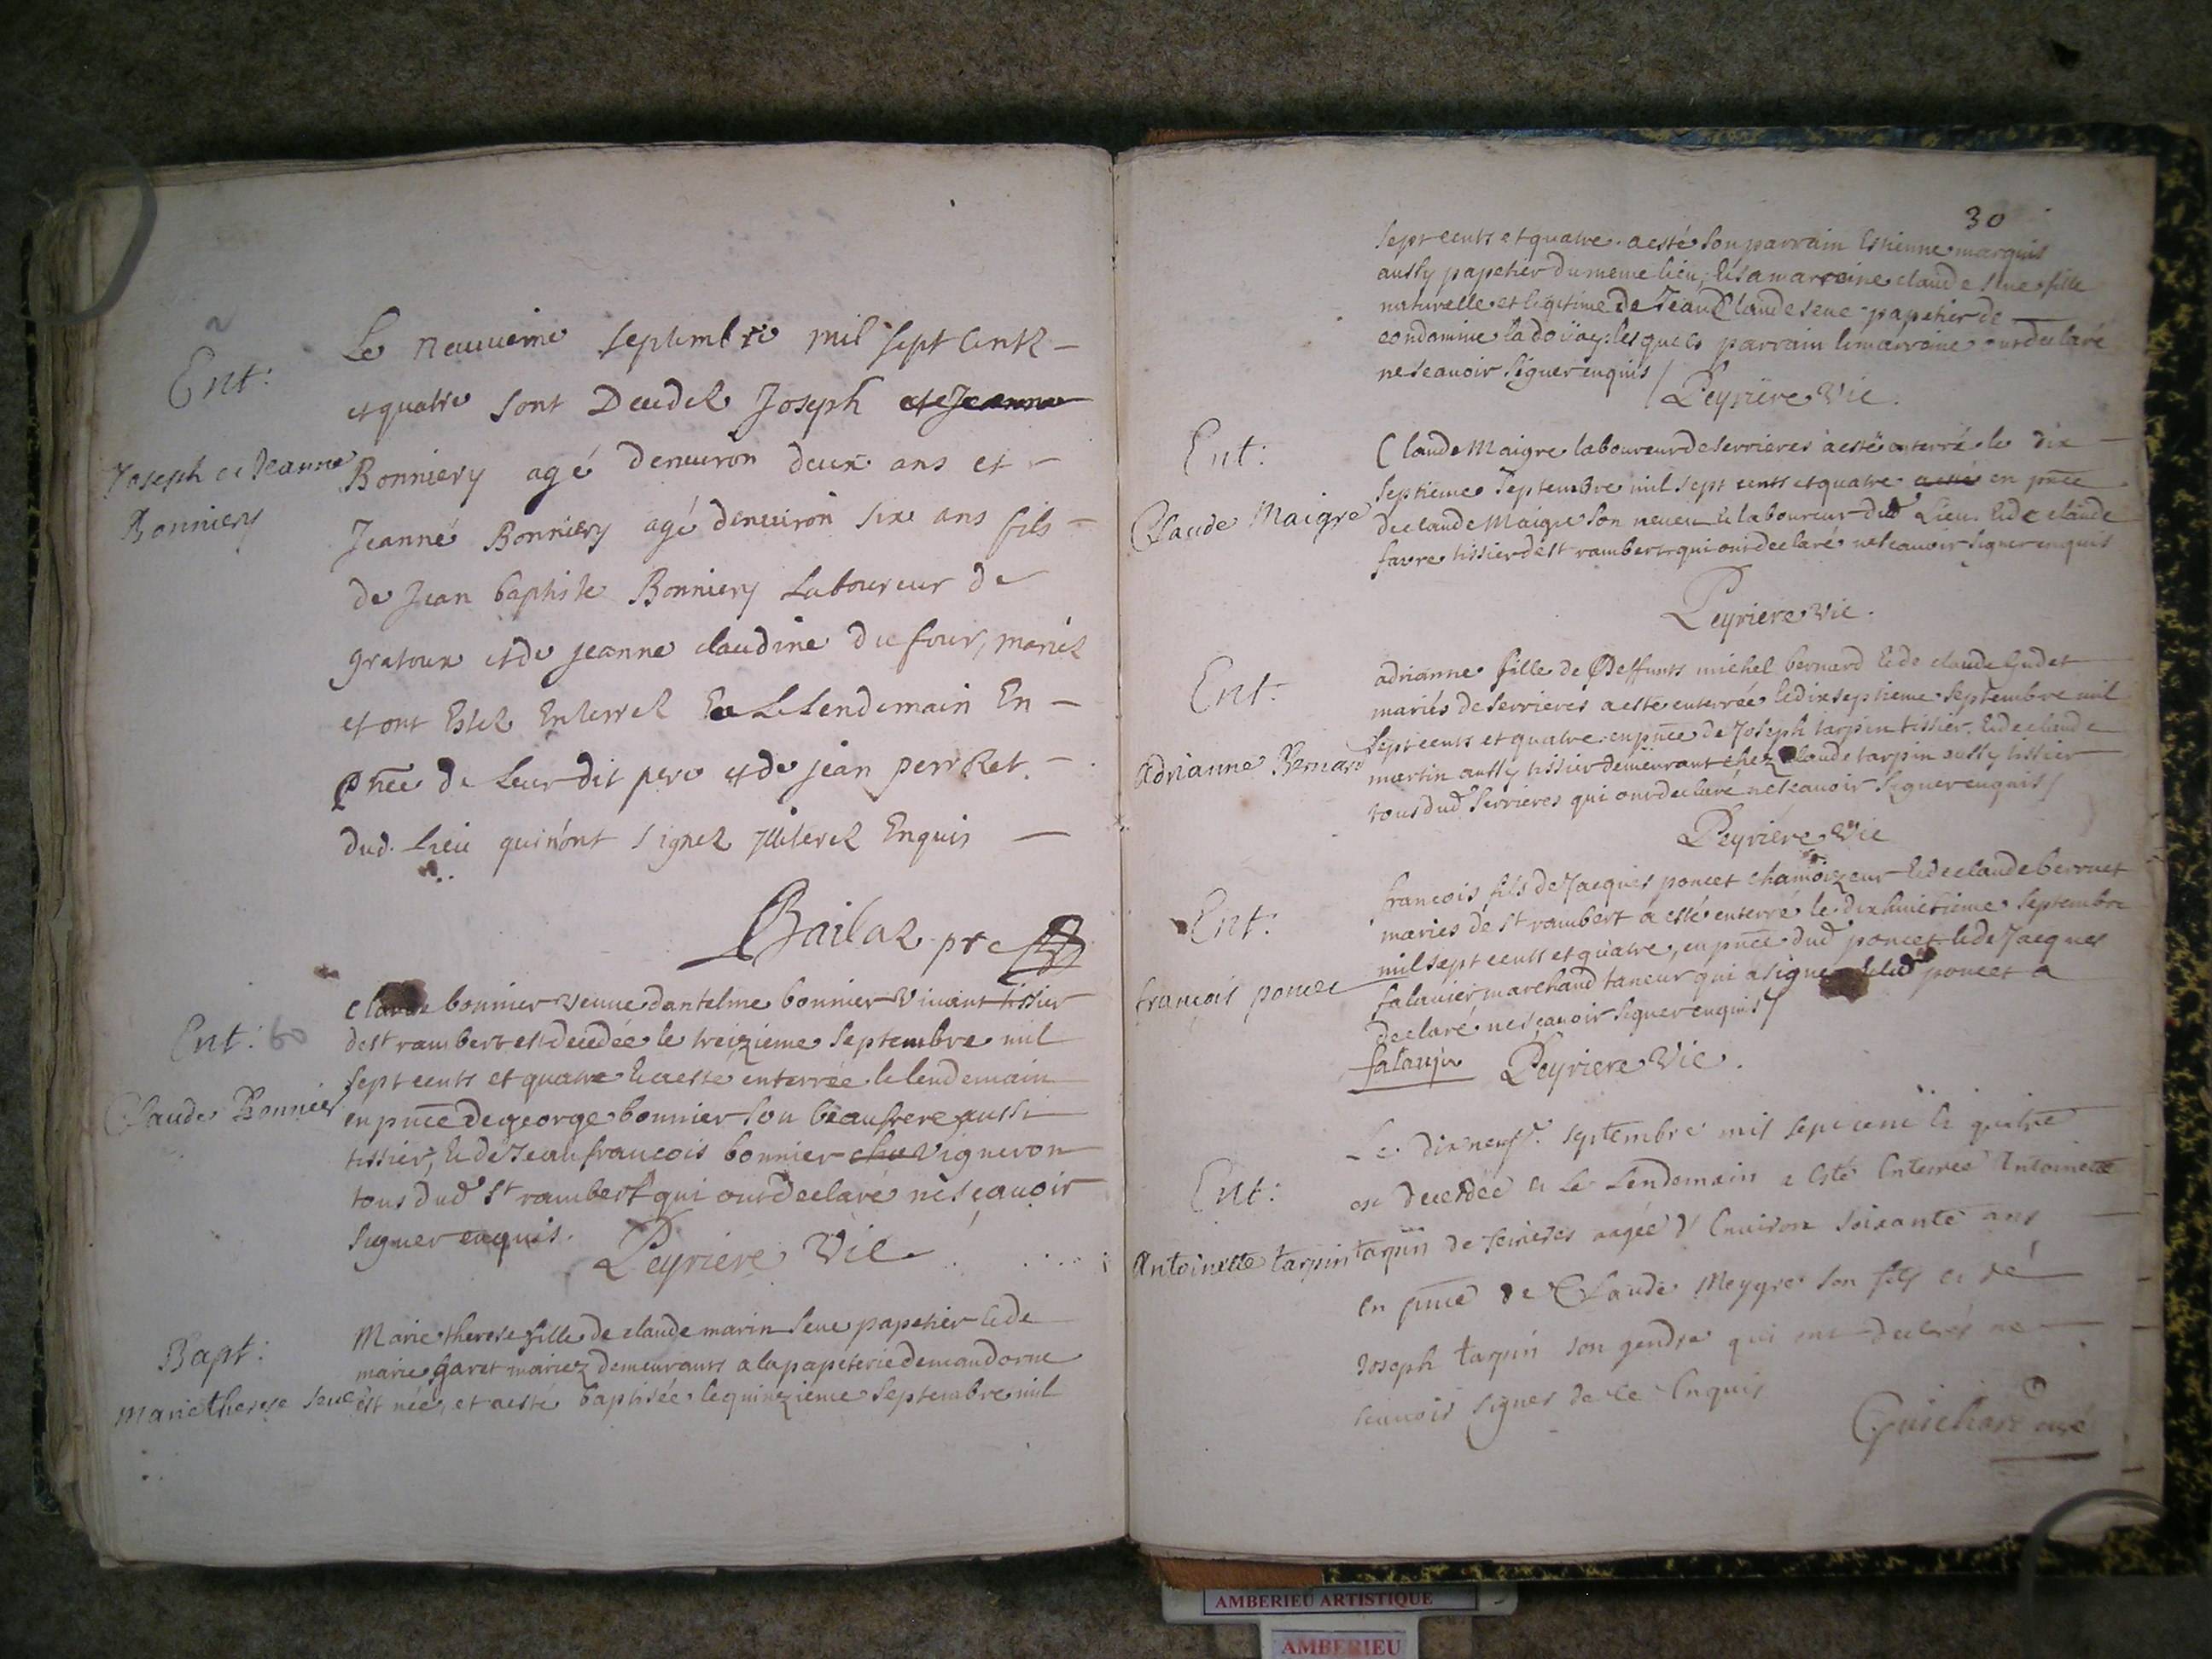 Ent:
Joseph et Jeanne
Bonniery
Le neuuieme septembre mil sept centz
et quatre sont Decedez Joseph et Jeanne
Bonniery agé denuiron deux ans et
Jeanne Bonniery agé denuiron six ans fils
de Jean baptiste Bonniery Laboureur de
gratoux et de jeanne claudine du four, mariez
et ont Estez Enterrez Le Lendemain En
pnce de Leur dit pere et de jean perret
dud. Lieu qui n'ont signez Illiterez Enquis
Bailaz pre
Ent: 60
Claude Bonnier
Claude bonnier veuue dantelme bonnier viuant tissier
de st rambert est decedée le treizieme septembre mil
sept cents et quatre et a esté enterrée le lendemain
en pnce de george bonnier son beaufrere aussi
tissier, et de Jean francois bonnier vigneron
tous dud st rambert qui ont declaré ne sçauoir
signer enquis.
Peyriere Vic.
Bapt:
Marie therese seue
Marie therese fille de claude marin seue papetier et de
marie garet mariez demeurants a la papeterie de mandorne
est née, et a esté baptisée le quinzieme septembre mil
30
sept cents et quatre. a esté son parrain Estienne marquis
aussy papetier du meme lieu, et sa marraine claude seue fille
naturelle et legitime de Jean Claude seue papetier de
condamine la doüay: lesquels parrain et marraine ont declaré
ne scauoir signer enquis /
Peyriere Vic.
Ent:
Claude Maigre
Claude Maigre laboureur de serrieres a esté enterré le dix
septieme septembre mil sept cents et quatre en pnce
de claude Maigre son neueu et laboureur dud Lieu. et de claude
favre tissier de st rambert qui ont declaré ne scauoir signer enquis
Peyriere Vic.
Ent:
Adrianne Bernard
adrianne fille de Deffunts michel bernard et de claude Gudet
mariés de serrieres a esté enterrée le dix septieme septembre mil
sept cents et quatre. en pnce de Joseph tarpin tissier. et de claude
martin aussy tissier demeurant chez claude tarpin aussy tissier
tous dud serrieres qui ont declaré ne scauoir signer enquis /
Peyriere Vic
Ent:
francois poncet
francois fils de Jacques poncet chamoizeur et de claude berruet
mariés de st rambert a esté enterré le dix huictieme septembre
mil sept cents et quatre, en pnce dud poncet et de Jacques
falauier marchand taneur qui a signé et led poncet a
declaré ne sçauoir signer enquis /
Peyriere Vic.
Ent:
Antoinette tarpin
Le dix neuf. septembre mil sept cent et quatre
est decedée et le Lendemain a esté Enterrée Antoinette
tarpin de serrieres aagée d'Enuiron soixante ans
en pnce de Claude Meygre son fils et de
Joseph tarpin son gendre qui ont declarés ne
scauoir signer de ce Enquis
Guichard curé
AMBERIEU ARTISTIQUE
AMBERIEU